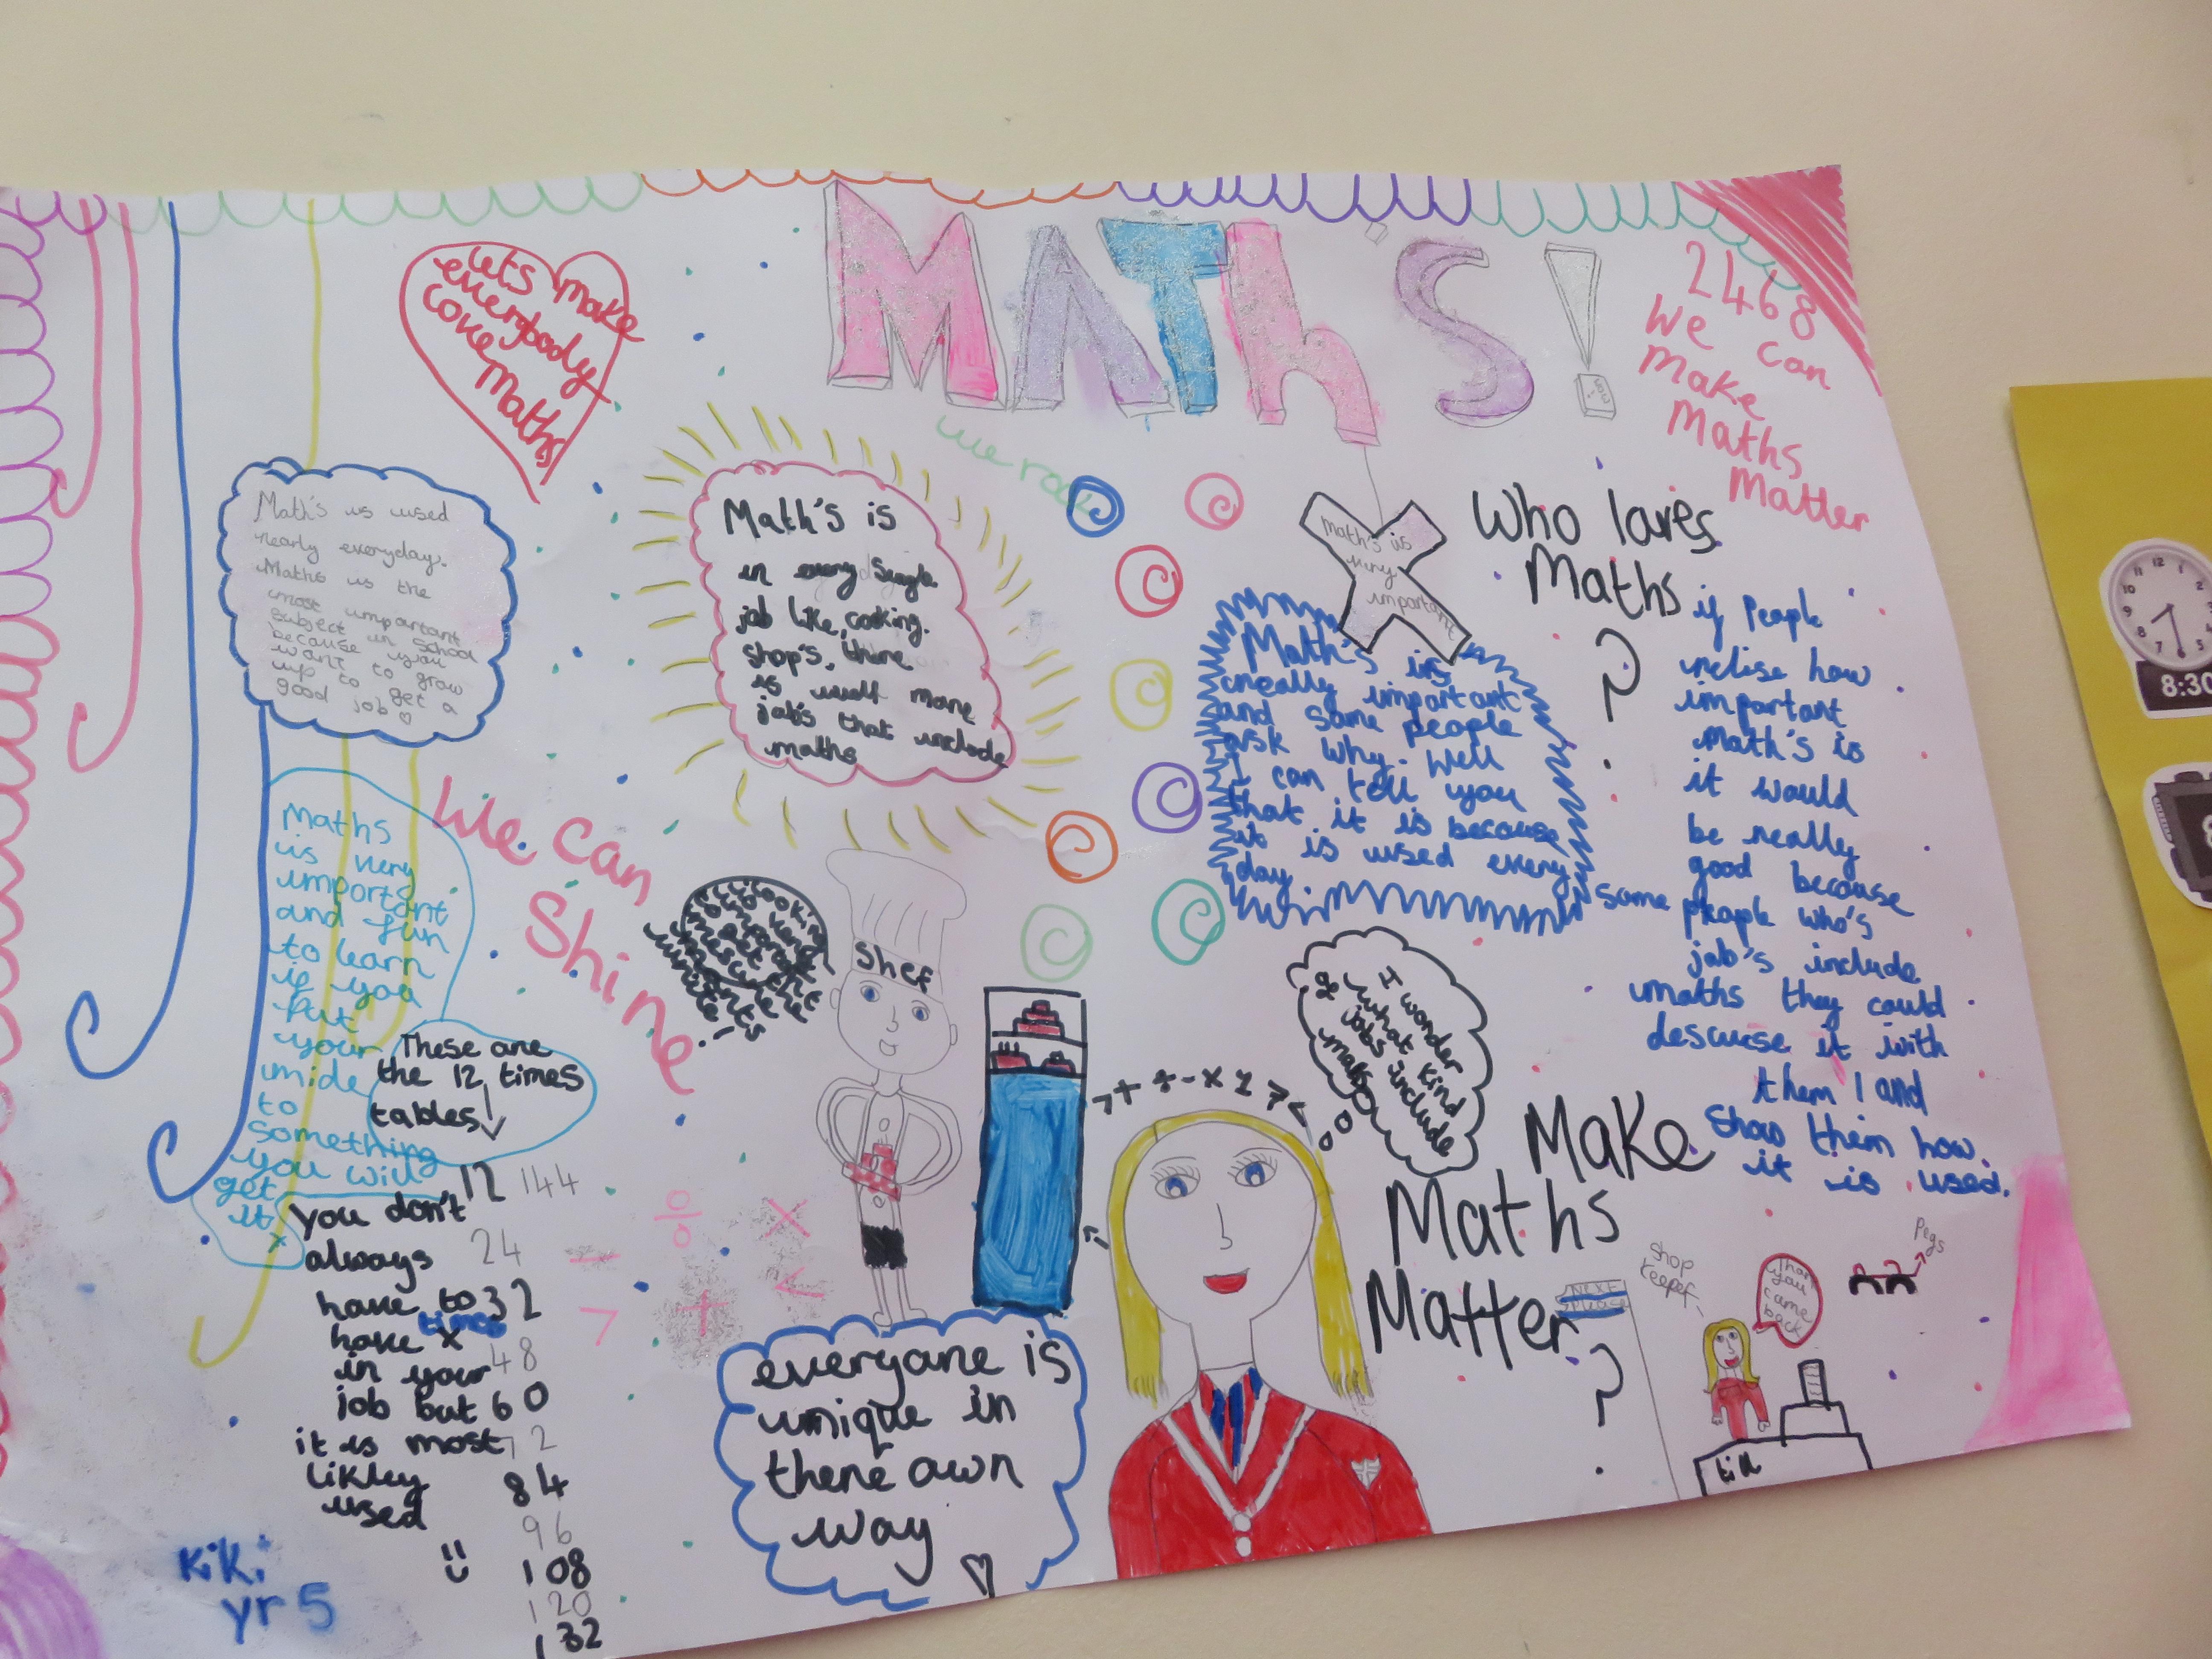 MAThS!
2468
We can
Make
Maths
Matter
Lets make
everybody
love
Maths
we rock
Math's is used
nearly everyday.
Maths is the
most important
subject in school
because you
want to grow
up to get a
good job
Math's is
in every single
job like, cooking.
shop's, there
is well more
job's that include
maths
Math's is
very
important
Who loves
Maths
?
Math's is
really important
and some people
ask why. Well
I can tell you
that it is because
it is used every
day.
if People
relise how
important
Math's is
it would
be really
good because
some people who's
job's include
maths they could
descuise it with
them 1 and
show them how
it is used.
We can
Shine
Maths
is very
important
and fun
to learn
if you
put
your
minde
to
something
you will
get
it
x
These are
the 12 times
tables
12 144
24
32
48
60
72
84
96
108
120
132
you don't
always
have to
have x times
in your
job but
it is most
likley
used
Shef
- ÷ ×
> + <
I wonder
what kind
of jobs include
maths
> + ÷ - ×
everyone is
unique in
there own
way
Make
Maths
Matter
?
Next
please
Shop
keeper
Than
you
came
back
Pegs
till
Kiki
yr 5
12 1 2
11 10 9 8 7 6 5
8:30
8